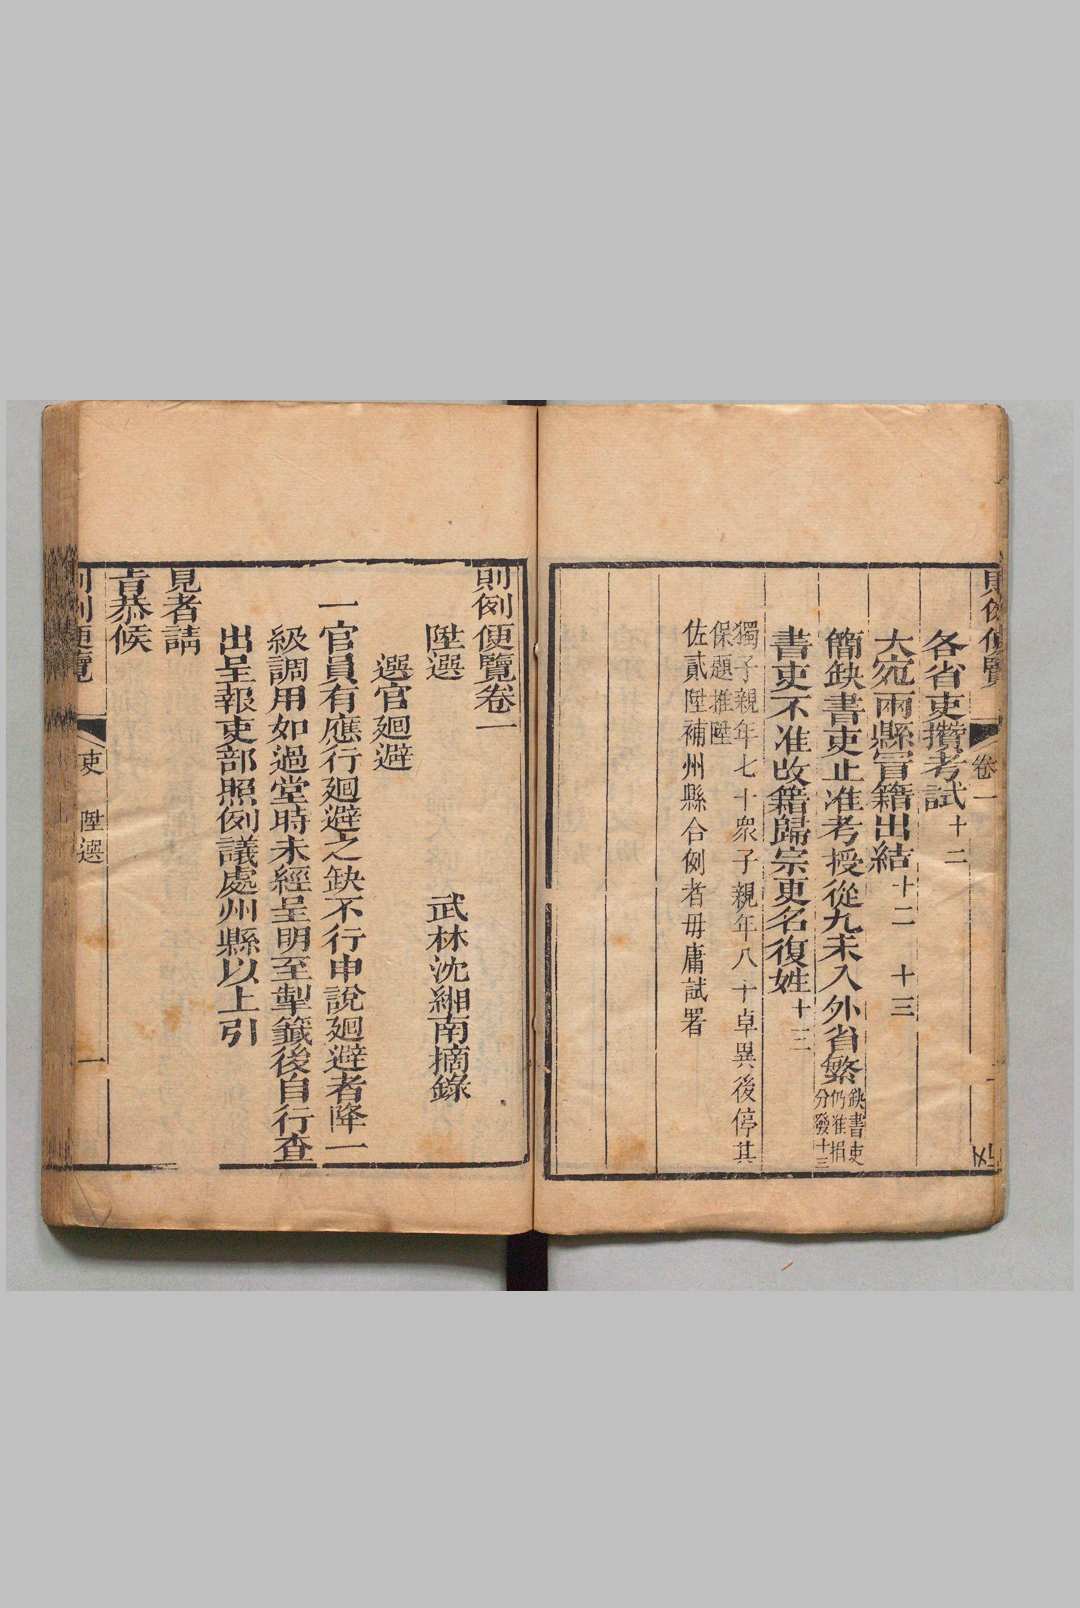 則例便覽
卷一
各省吏攢考試十二
大宛兩縣冒籍出結十二 十三
簡缺書吏止准考授從九未入外省繁缺書吏仍准捐分發十三
書吏不准改籍歸宗更名復姓十三
獨子親年七十衆子親年八十卓異後停其
保題推陞
佐貳陞補州縣合例者毋庸試署
則例便覽卷一
陞選 武林沈緗南摘錄
選官廻避
一官員有應行廻避之缺不行申說廻避者降一
級調用如過堂時未經呈明至掣籤後自行查
出呈報吏部照例議處州縣以上引
見者請
旨恭候
則例便覽
吏 陞選
一